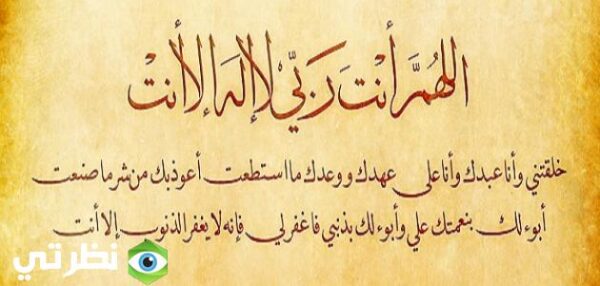 اللهُمَّ أَنْتَ رَبِّي لا إلَهَ إلا أنْتَ
خلقتني وأنا عبدك وأنا على عهدك ووعدك ما استطعت أعوذ بك من شر ما صنعت
أبوء لك بنعمتك علي وأبوء لك بذنبي فاغفر لي فإنه لا يغفر الذنوب إلا أنت
نظرتي